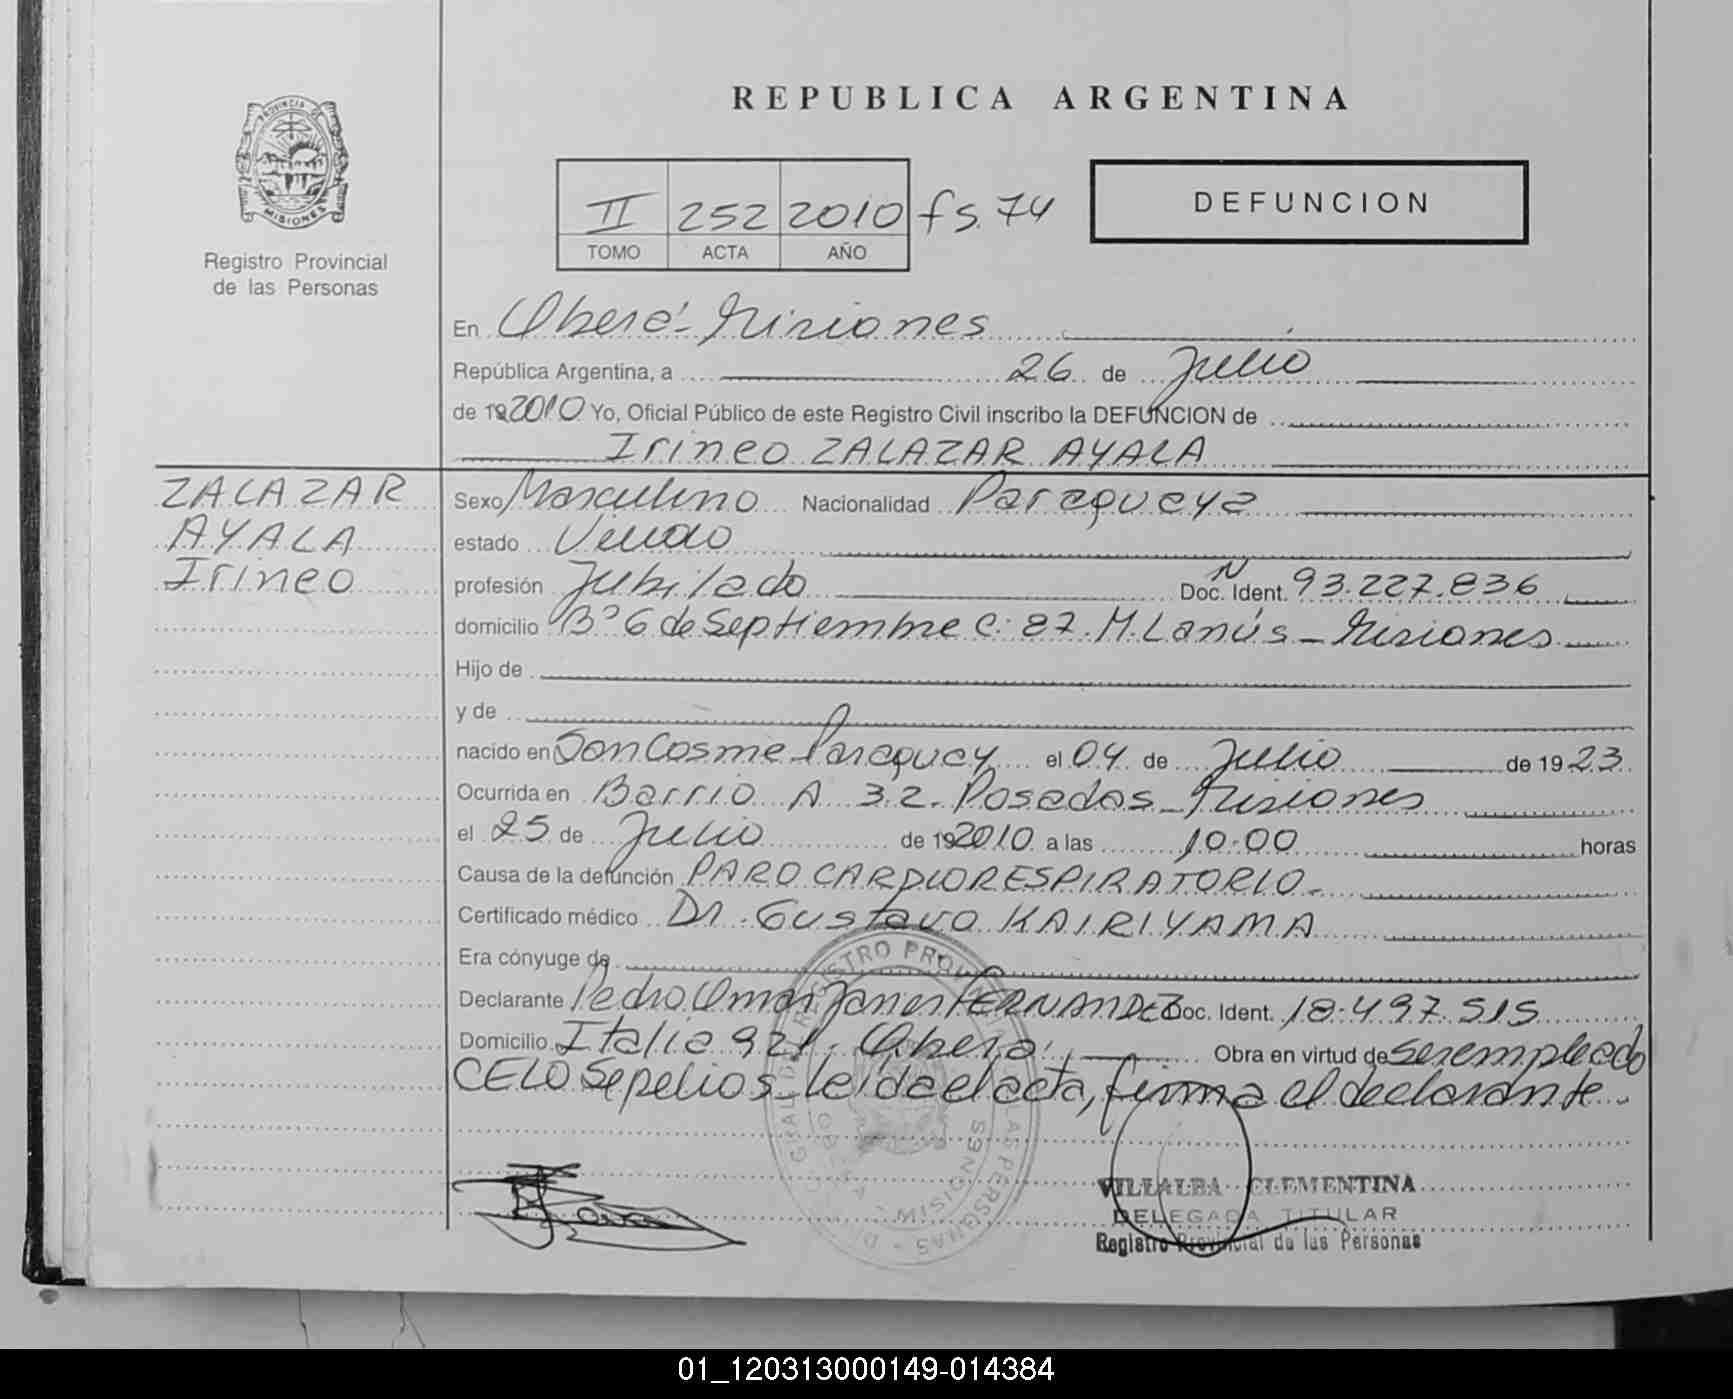 REPUBLICA ARGENTINA
PROVINCIA DE MISIONES
Registro Provincial
de las Personas
II 252 2010 fs. 74
TOMO ACTA AÑO
DEFUNCION
En Oberá - Misiones
República Argentina, a 26 de Julio
de 19 2010 Yo, Oficial Público de este Registro Civil inscribo la DEFUNCION de
Irineo ZALAZAR AYALA
ZALAZAR
AYALA
Irineo
Sexo Masculino Nacionalidad Paraguaya
estado Viudo
profesión Jubilado Doc. Ident. N 93.227.836
domicilio B° 6 de Septiembre C: 87. M. Lanús - Misiones
Hijo de
y de
nacido en San Cosme Paraguay el 04 de Julio de 19 23
Ocurrida en Barrio A 3.2. Posadas - Misiones
el 25 de Julio de 19 2010 a las 10:00 horas
Causa de la defunción PARO CARDIORESPIRATORIO.
Certificado médico Dr. Gustavo KAIRIYAMA
Era cónyuge de
Declarante Pedro Omar Javier FERNANDEZ Doc. Ident. 18.497.515
Domicilio Italia 921. Oberá, Obra en virtud de ser empleado
CELO Sepelios - leída el acta, firma el declarante
VILLALBA CLEMENTINA
DELEGADA TITULAR
Registro Provincial de las Personas
01_120313000149-014384